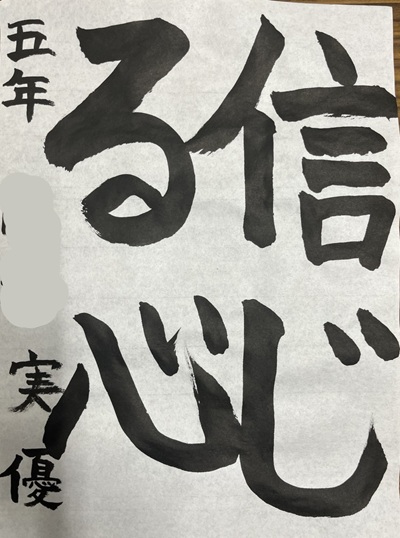 信じ
る心
五年 実優